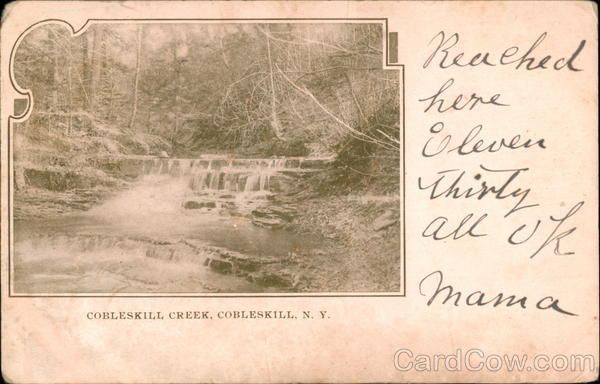 Reached
here
Eleven
thirty
all OK
Mama
COBLESKILL CREEK, COBLESKILL, N. Y.
CardCow.com